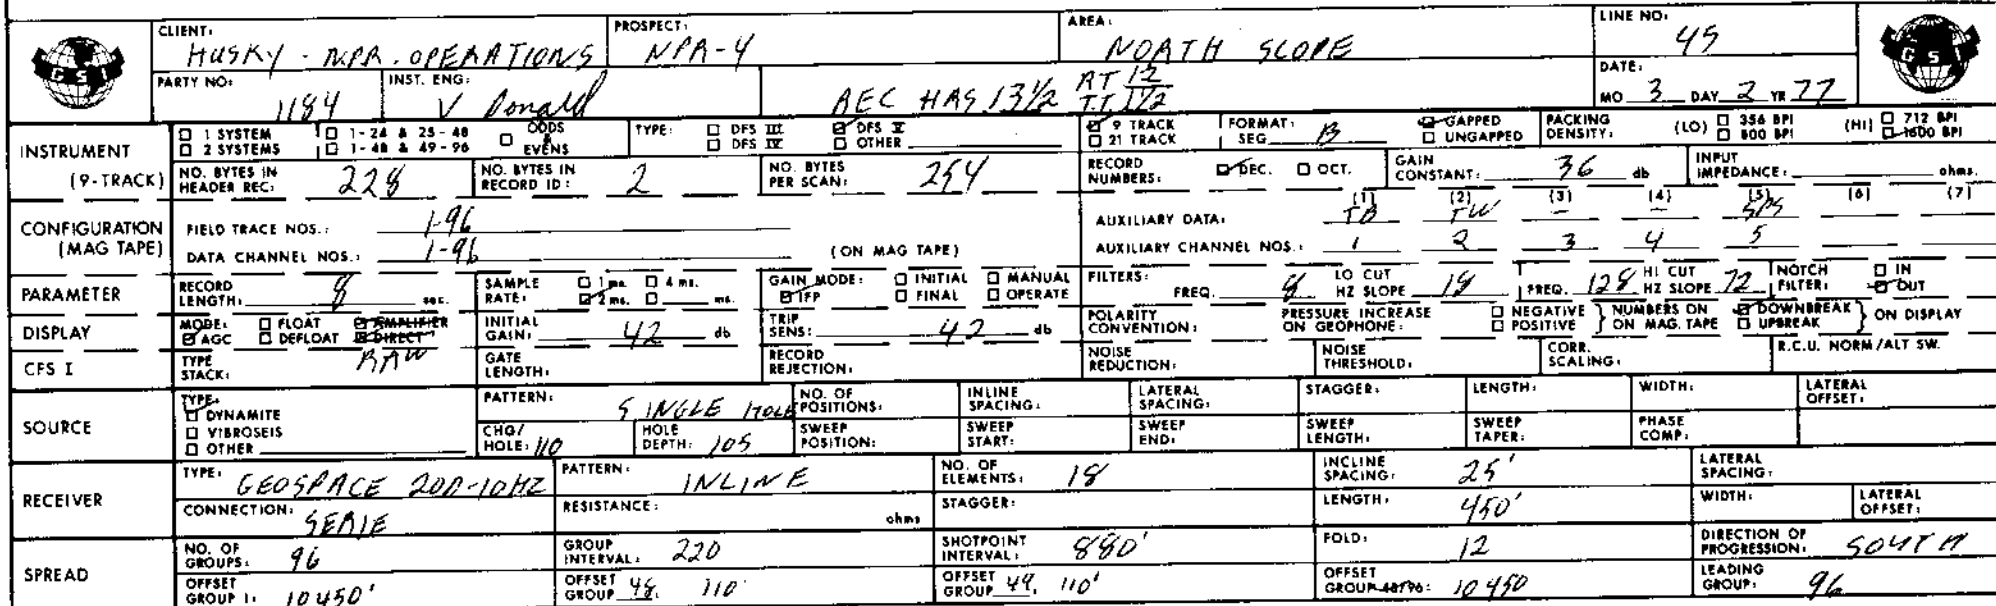 CLIENT: HUSKY - NPR. OPERATIONS PROSPECT: NPR-4 AREA: NORTH SLOPE LINE NO: 45
GSI GSI
PARTY NO: 1184 INST. ENG: V Donald REC HAS 13 1/2 RT 12 T.T 1 1/2 DATE: MO 3 DAY 2 YR 77
INSTRUMENT (9-TRACK)
☐ 1 SYSTEM ☐ 1-24 & 25-48 ☐ ODDS & EVENS TYPE: ☐ DFS III ☑ DFS V ☑ 9 TRACK FORMAT: SEG B ☑ GAPPED PACKING DENSITY: (LO) ☐ 356 BPI (HI) ☐ 712 BPI
☐ 2 SYSTEMS ☐ 1-48 & 49-96 ☐ DFS IV ☐ OTHER ☐ 21 TRACK ☐ UNGAPPED ☐ 800 BPI ☑ 1600 BPI
NO. BYTES IN HEADER REC: 228 NO. BYTES IN RECORD ID: 2 NO. BYTES PER SCAN: 254 RECORD NUMBERS: ☑ DEC. ☐ OCT. GAIN CONSTANT: 36 db INPUT IMPEDANCE: ohms.
CONFIGURATION (MAG TAPE)
(1) (2) (3) (4) (5) (6) (7)
FIELD TRACE NOS.: 1-96 AUXILIARY DATA: TB TW - - SPS
DATA CHANNEL NOS.: 1-96 (ON MAG TAPE) AUXILIARY CHANNEL NOS.: 1 2 3 4 5
PARAMETER RECORD LENGTH: 8 sec. SAMPLE RATE: ☐ 1 ms. ☐ 4 ms. ☑ 2 ms. ☐ ms. GAIN MODE: ☐ INITIAL ☐ MANUAL ☑ IFP ☐ FINAL ☐ OPERATE FILTERS: FREQ. 8 LO CUT HZ SLOPE 18 FREQ. 128 HI CUT HZ SLOPE 72 NOTCH FILTER: ☐ IN ☑ OUT
DISPLAY MODE: ☐ FLOAT ☑ AMPLIFIER ☑ AGC ☐ DEFLOAT ☑ DIRECT INITIAL GAIN: 42 db TRIP SENS: 42 db POLARITY CONVENTION: PRESSURE INCREASE ON GEOPHONE: ☐ NEGATIVE ☐ POSITIVE } NUMBERS ON ON MAG. TAPE ☑ DOWNBREAK ☐ UPBREAK } ON DISPLAY
CFS I TYPE STACK: RAW GATE LENGTH: RECORD REJECTION: NOISE REDUCTION: NOISE THRESHOLD: CORR. SCALING: R.C.U. NORM/ALT SW.
SOURCE TYPE: ☑ DYNAMITE ☐ VIBROSEIS ☐ OTHER PATTERN: SINGLE HOLE NO. OF POSITIONS: INLINE SPACING: LATERAL SPACING: STAGGER: LENGTH: WIDTH: LATERAL OFFSET:
CHG/HOLE: 110 HOLE DEPTH: 105 SWEEP POSITION: SWEEP START: SWEEP END: SWEEP LENGTH: SWEEP TAPER: PHASE COMP:
RECEIVER TYPE: GEOSPACE 20D-10HZ PATTERN: INLINE NO. OF ELEMENTS: 18 INCLINE SPACING: 25' LATERAL SPACING:
CONNECTION: SERIE RESISTANCE: ohms STAGGER: LENGTH: 450' WIDTH: LATERAL OFFSET:
SPREAD NO. OF GROUPS: 96 GROUP INTERVAL: 220 SHOTPOINT INTERVAL: 880' FOLD: 12 DIRECTION OF PROGRESSION: SOUTH
OFFSET GROUP 1: 10450' OFFSET GROUP 48: 110' OFFSET GROUP 49: 110' OFFSET GROUP 48/96: 10450 LEADING GROUP: 96